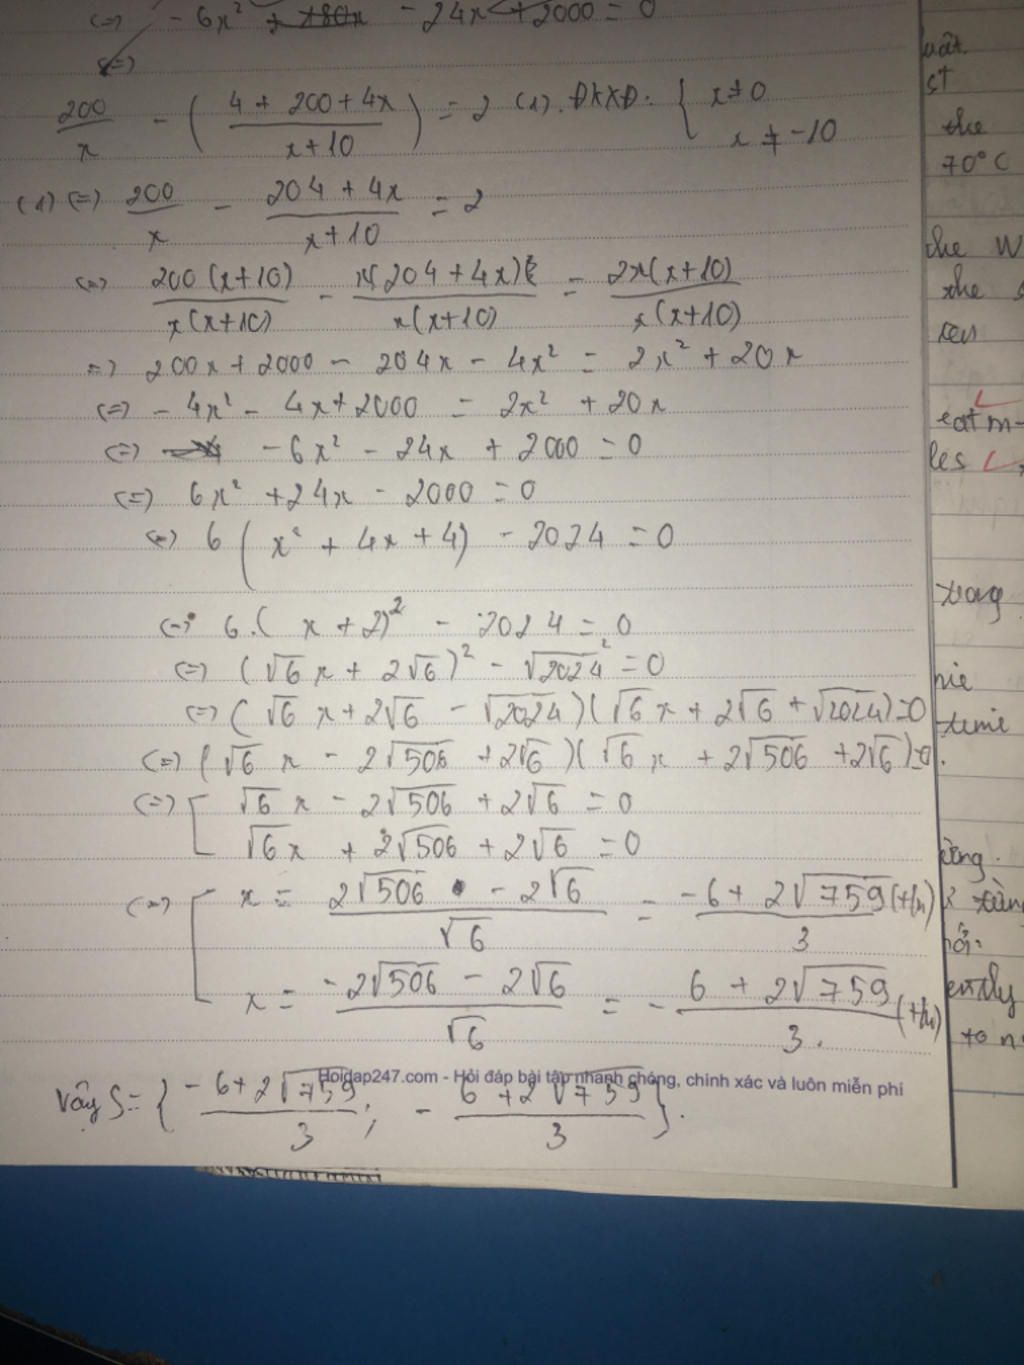 (=) - 6x² - 24x + 2000 = 0
(=)
200/x - ( (4 + 200 + 4x)/(x+10) ) = 2 (1). ĐKXĐ: { x ≠ 0
x ≠ -10
(1) (=) 200/x - (204 + 4x)/(x+10) = 2
(=) 200(x+10)/x(x+10) - x(204 + 4x)/x(x+10) = 2x(x+10)/x(x+10)
=) 200x + 2000 - 204x - 4x² = 2x² + 20x
(=) - 4x² - 4x + 2000 = 2x² + 20x
(=) - 6x² - 24x + 2000 = 0
(=) 6x² + 24x - 2000 = 0
(=) 6 ( x² + 4x + 4) - 2024 = 0
(=) 6.( x + 2)² - 2024 = 0
(=) (√6 x + 2√6)² - √2024² = 0
(=) (√6 x + 2√6 - √2024)(√6 x + 2√6 + √2024) = 0
(=) (√6 x - 2√506 + 2√6)(√6 x + 2√506 + 2√6) = 0.
(=) [ √6 x - 2√506 + 2√6 = 0
√6 x + 2√506 + 2√6 = 0
(=) [ x = (2√506 - 2√6)/√6 = (-6 + 2√759)/3 (t/m)
x = (-2√506 - 2√6)/√6 = - (6 + 2√759)/3. (t/m)
Vậy S = { (-6 + 2√759)/3 ; - (6 + 2√759)/3 }.
Hoidap247.com - Hỏi đáp bài tập nhanh chóng, chính xác và luôn miễn phí
uất.
st
the
70°C
the W
the
eat m-
les
trong
time
to n